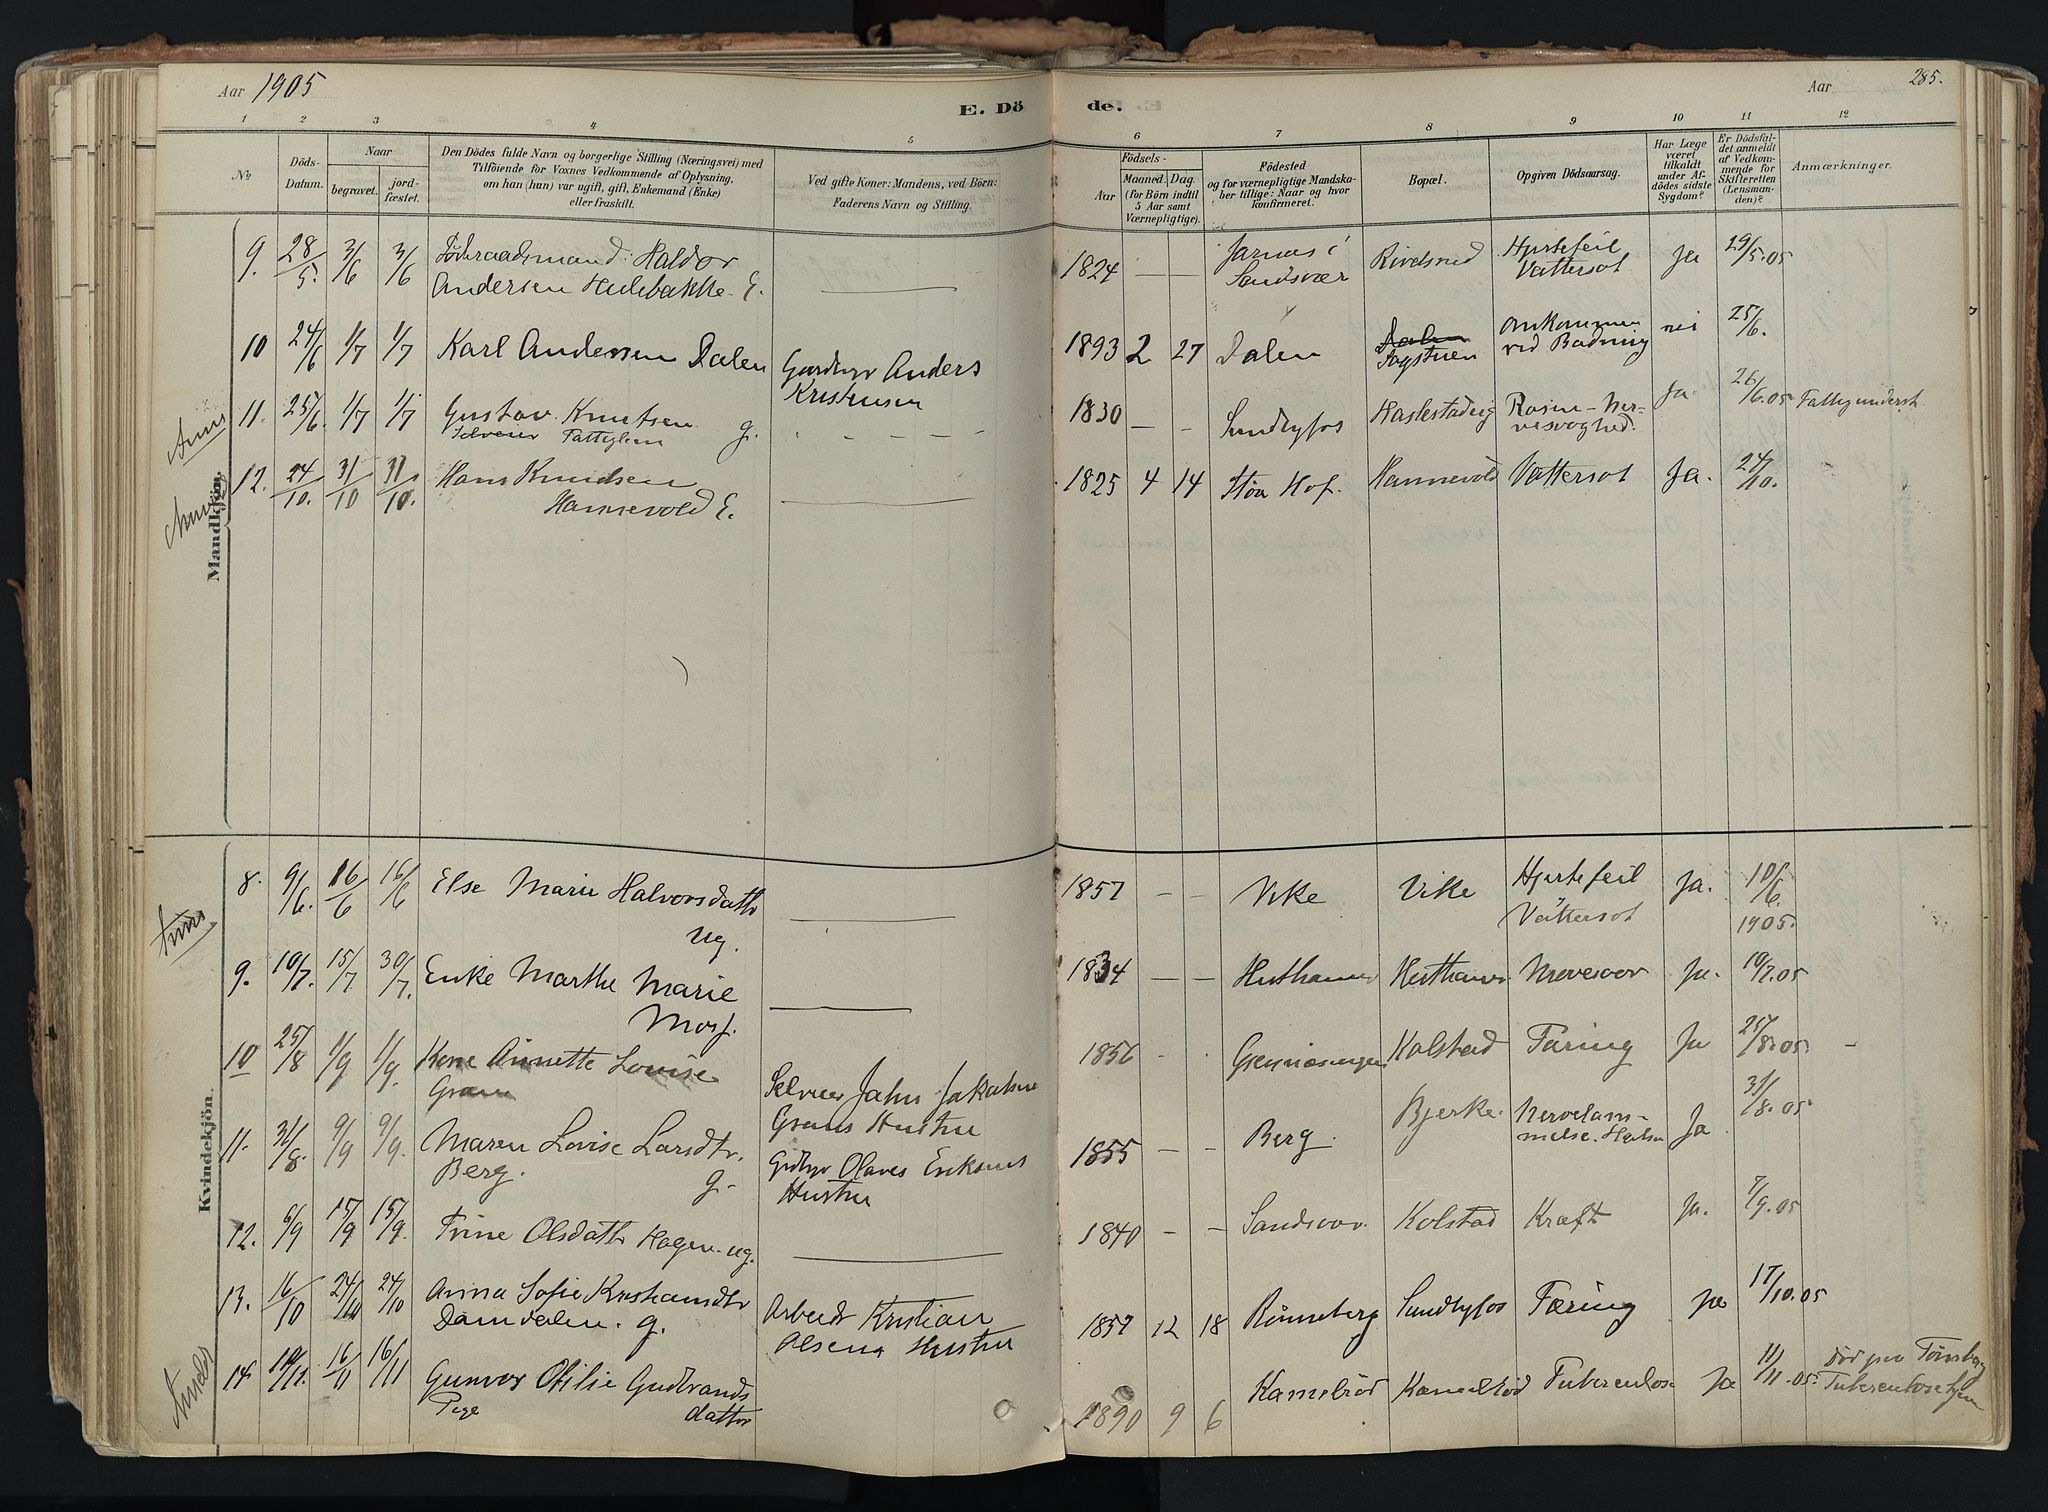 Aar 1905
E. Dö
de.
Aar
285.
1 2 3 4 5 6 7 8 9 10 11 12
№
Döds-
Datum.
Naar
begravet.
jord-
fæstet.
Den Dödes fulde Navn og borgerlige Stilling (Næringsvei) med
Tilföiende for Voxnes Vedkommende af Oplysning,
om han (hun) var ugift, gift, Enkemand (Enke)
eller fraskilt.
Ved gifte Koner: Mandens, ved Börn:
Faderens Navn og Stilling.
Födsels-
Aar
Maaned. Dag.
(for Börn indtil
5 Aar samt
Værnepligtige).
Födested
og for værnepligtige Mandska-
ber tillige: Naar og hvor
konfirmeret.
Bopæl.
Opgiven Dödsaarsag.
Har Læge
været
tilkaldt
under Af-
dödes sidste
Sygdom?
Er Dödsfal-
det anmeldt
af Vedkom-
mende for
Skifteretten
(Lensman-
den)?
Anmærkninger.
Mandkjön.
9. 28/5. 3/6 3/6 Föderaadsmand Haldor
Andersen Hulebakke E.
1824 — — Jarnas i
Sandsvær
Hjertefeil
Vattersot
Ja 29/5.05
10 24/6 1/7 1/7 Karl Andersen Dalen
Gardbr Anders
Kristensen
1893 2 27 Dalen
Dalen
Sagstuen
Omkommen
ved Badning
nei 25/6.
11. 25/6. 1/7 1/7 Gustav Knutsen
Selveier Fattiglem g.
1830 — — Sundbyfos
Ja 26/6.05 Fattigunderst
12. 24/10. 31/10 31/10. Hans Knudsen
Hannevold E.
1825 4 14 Støa Hof. Hannevold Vattersot Ja. 24/10.
Kvindekjön.
8. 9/6. 16/6 16/6 Else Marie Halvorsdattr
ug.
1857 — — Vike Vike Hjertefeil
Vattersot
Ja. 10/6.
1905.
9. 10/7. 15/7 30/7. Enke Marthe Marie
Moss.
1834 — — Ja. 10/7.05
10 25/8 1/9 1/9. Kone Annette Lovise
Gran
Selveier Jahn Jakobsen
Grans Hustru
1856 - - Kolstad Tæring Ja 25/8.05.
11. 31/8. 9/9 9/9. Maren Lovise Larsdtr.
Berg. g.
Gbr Olaves Eriksens
Hustru
1855 — — Berg. Bjerke. Ja 31/8.05.
12. 6/9 15/9 15/9. Trine Olsdattr Hagen. ug.
1840 — — Sandsvær. Kolstad Kræft Ja. 7/9.05
13. 16/10 24/10 24/10 Anna Sofie Kristiansdtr
Damdalen. g.
Arbeidr Kristian
Olsens Hustru
1857 12 18 Rønneberg Sundbyfos Tæring Ja 17/10.05
14. 10/11. 16/11 16/11 Gunvor Otilie Gudbrands
Pige dattr
1890 9 6 Tuberculose Ja 11/11.05. Død paa Tønsberg
Tuberculosehjem